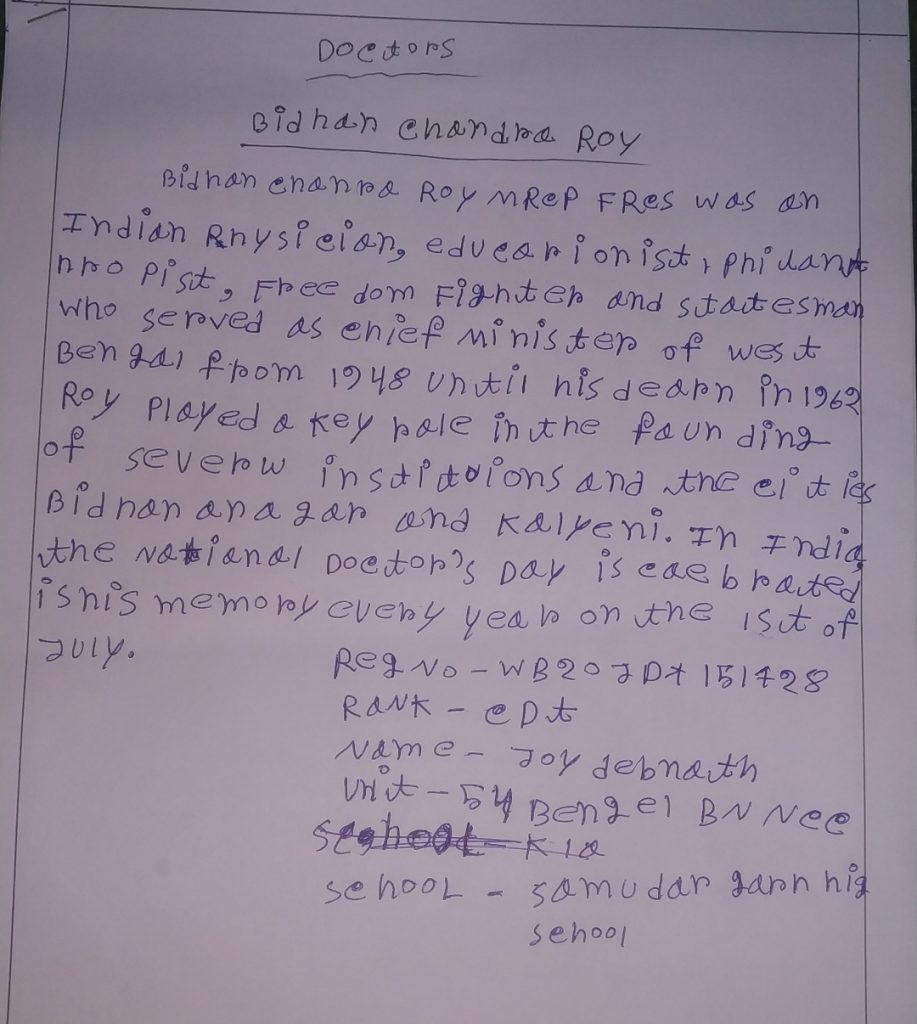 Doctors
Bidhan Chandra Roy
Bidhan Chanra Roy MRCP FRCS was an
Indian Physician, educarionist, phidant
hropist, Freedom Fighter and statesman
who served as chief Minister of west
Bengal from 1948 until his dearh in 1962
Roy Played a key role in the founding
of severw institutions and the cities
Bidhananagar and Kalyeni. In India
the National Doctor's Day is caebrated
is his memory every year on the 1st of
July.
Reg No - WB20JDA 151428
RANK - CDt
Name - Joy debnath
Unit - 54 Bengel BN NCC
School - Samudar garh hig
School